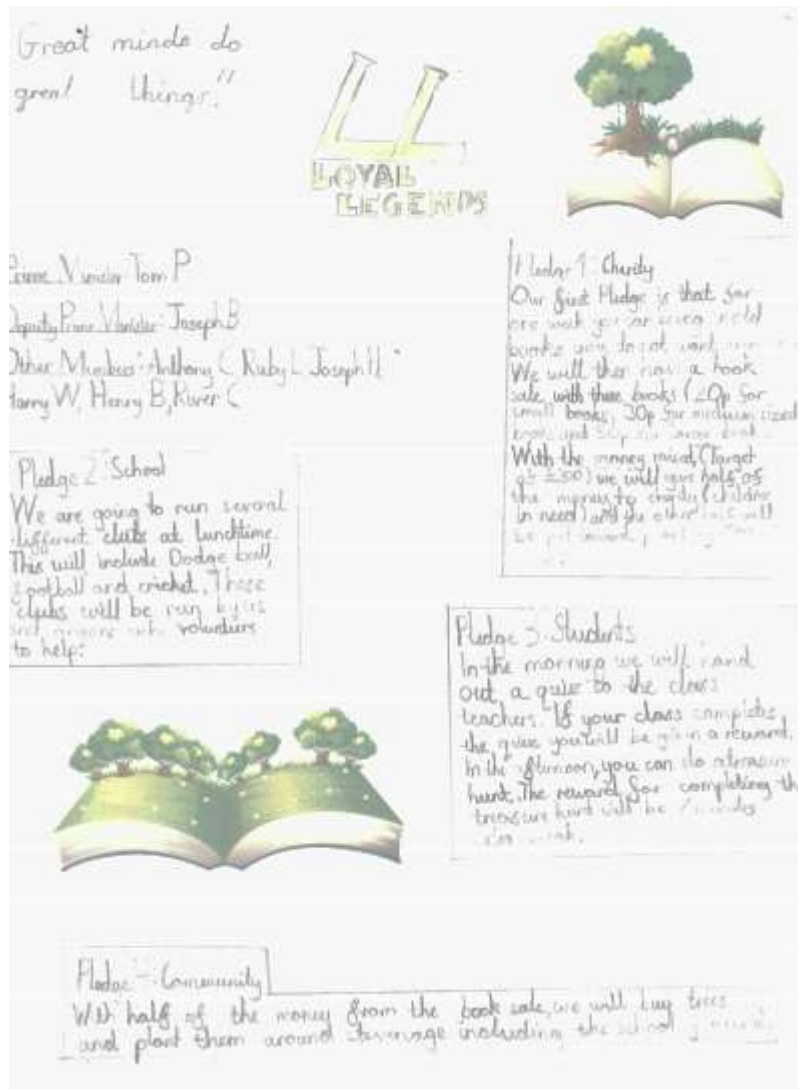 Great minds do
great things."
LOYAL
LEGENDS
Prime Minister Tom P
Deputy Prime Minister: Joseph B
Other Members: Anthony C Ruby L Joseph H
Harry W, Henry B, River C
Pledge 1: Charity
Our first Pledge is that for
one week
books you do not want
We will then run a book
sale with these books (20p for
small books, 30p for medium sized
books and 50p for large books
With the money raised, (Target
of £200) we will give half of
the money to charity (children
in need) and the other half will
be put toward
Pledge 2: School
We are going to run several
different clubs at lunchtime.
This will include Dodge ball,
football and cricket. These
clubs will be run by us
and volunteers
to help.
Pledge 3: Students
In the morning we will hand
out a quiz to the class
teachers. If your class completes
the quiz you will be given a reward.
In the afternoon, you can do a treasure
hunt. The reward for completing the
treasure hunt will be
Pledge 4: Community
With half of the money from the book sale, we will buy trees
and plant them around Stevenage including the school